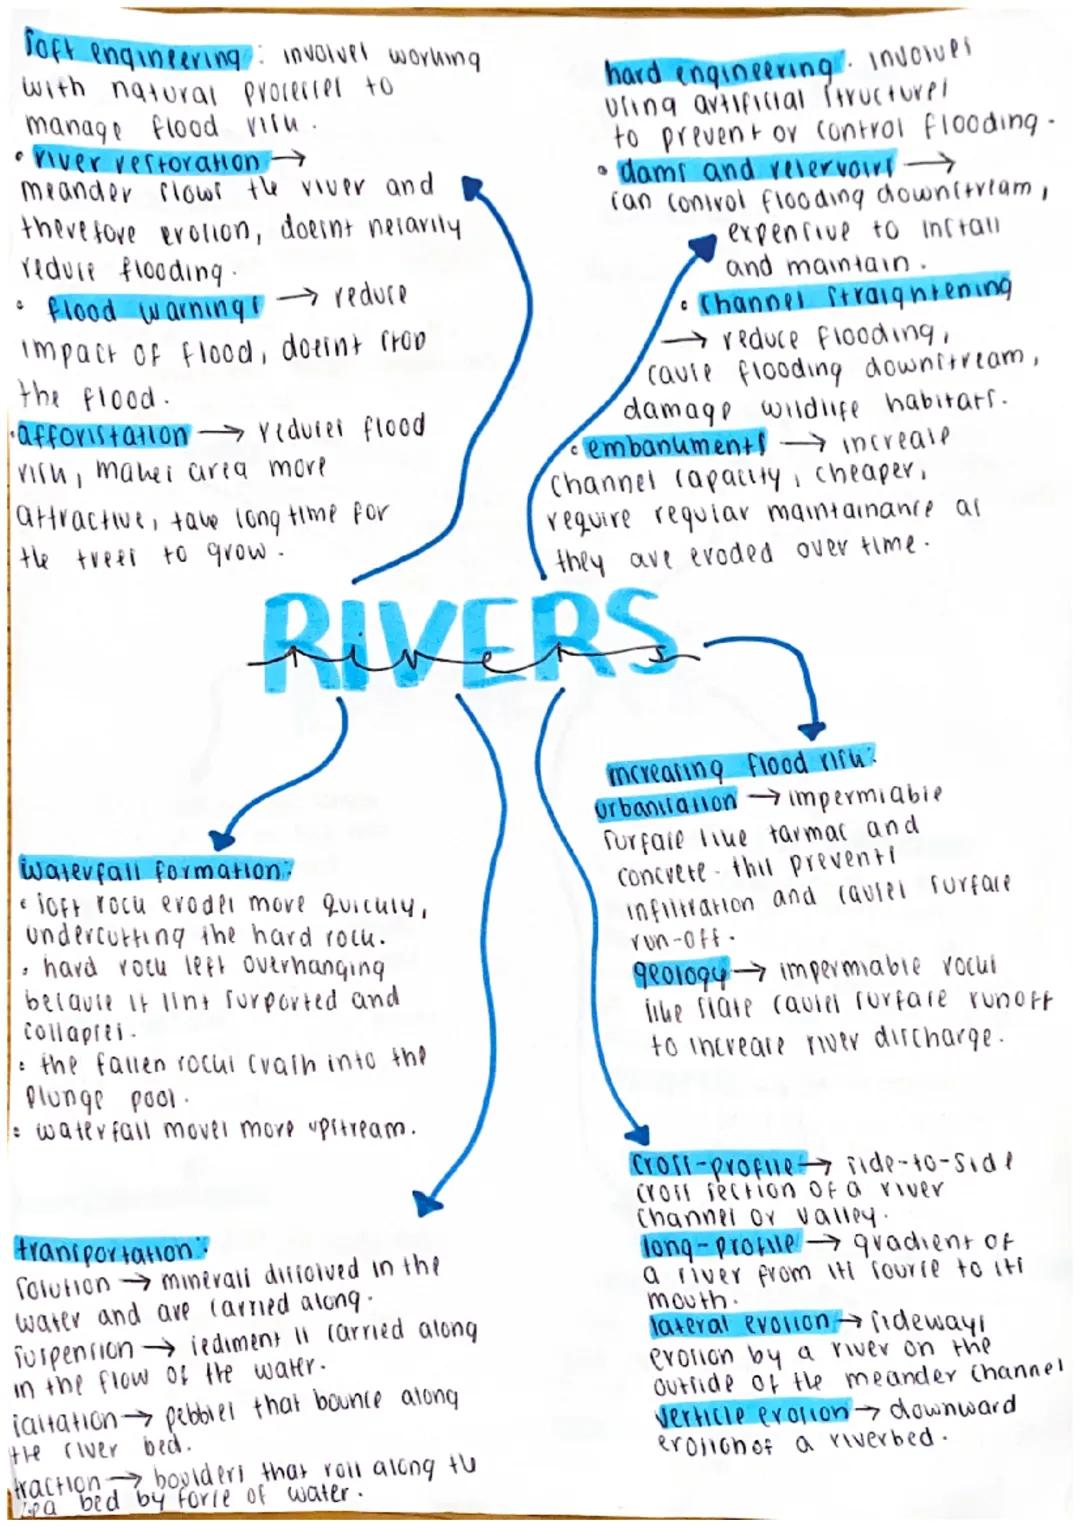 soft engineering: involves working
with natural processes to
manage flood risk.
• river restoration →
meander slows the river and
therefore erosion, doesnt necarily
reduce flooding.
• flood warnings → reduce
impact of flood, doesnt stop
the flood.
• afforistation → reduces flood
risk, makes area more
attractive, take long time for
the trees to grow.
hard engineering: involves
using artificial structures
to prevent or control flooding.
• dams and reservoirs →
can control flooding downstream,
expensive to install
and maintain.
• channel straightening
→ reduce flooding,
cause flooding downstream,
damage wildlife habitats.
• embankments → increase
channel capacity, cheaper,
require regular maintainance as
they are eroded over time.
RIVERS
rivers
increasing flood risk:
urbanisation → impermiable
surface like tarmac and
concrete. this prevents
infiltration and causes surface
run-off.
geology → impermiable rocks
like slate causes surface runoff
to increase river discharge.
waterfall formation:
• soft rock erodes more quickly,
undercutting the hard rock.
• hard rock left overhanging
because it isnt surported and
collapses.
• the fallen rocks crash into the
plunge pool.
• waterfall moves more upstream.
cross-profile → side-to-side
cross section of a river
channel or valley.
long-profile → gradient of
a river from its source to its
mouth.
lateral erosion → sideways
erosion by a river on the
outside of the meander channel
verticle erosion → downward
erosion of a riverbed.
transportation:
solution → minerals dissolved in the
water and are carried along.
suspension → sediment is carried along
in the flow of the water.
saltation → pebbles that bounce along
the river bed.
traction → boulders that roll along the
sea bed by force of water.